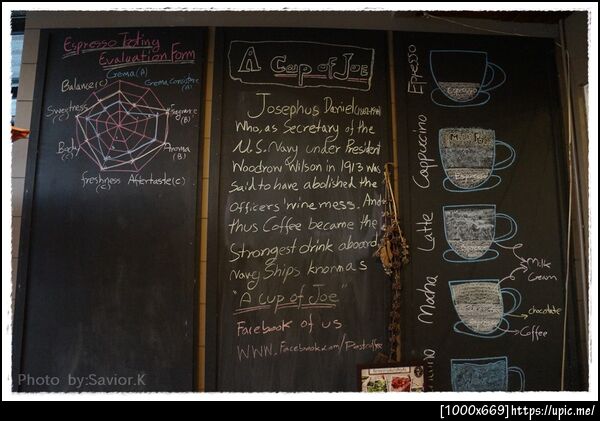 Espresso Testing
Evaluation Form
Crema (A)
Balance (C)
Crema Consistence (A)
Sweetness (C)
(B)
Body (C)
Aroma (B)
freshness (C)
Aftertaste (C)
A Cup of Joe
Josephus Daniel
Who, as Secretary of the
U.S. Navy under President
Woodrow Wilson in 1913 was
Said to have abolished the
Officers' wine mess. And
thus Coffee became the
Strongest drink aboard
Navy Ships known as
"A cup of Joe"
Facebook of us
Espresso
Espresso
Cappuccino
Milk Foam
Espresso
Latte
Milk
Cream
Mocha
chocolate
Coffee
Photo by:Savior.K
[1000x669]https://upic.me/